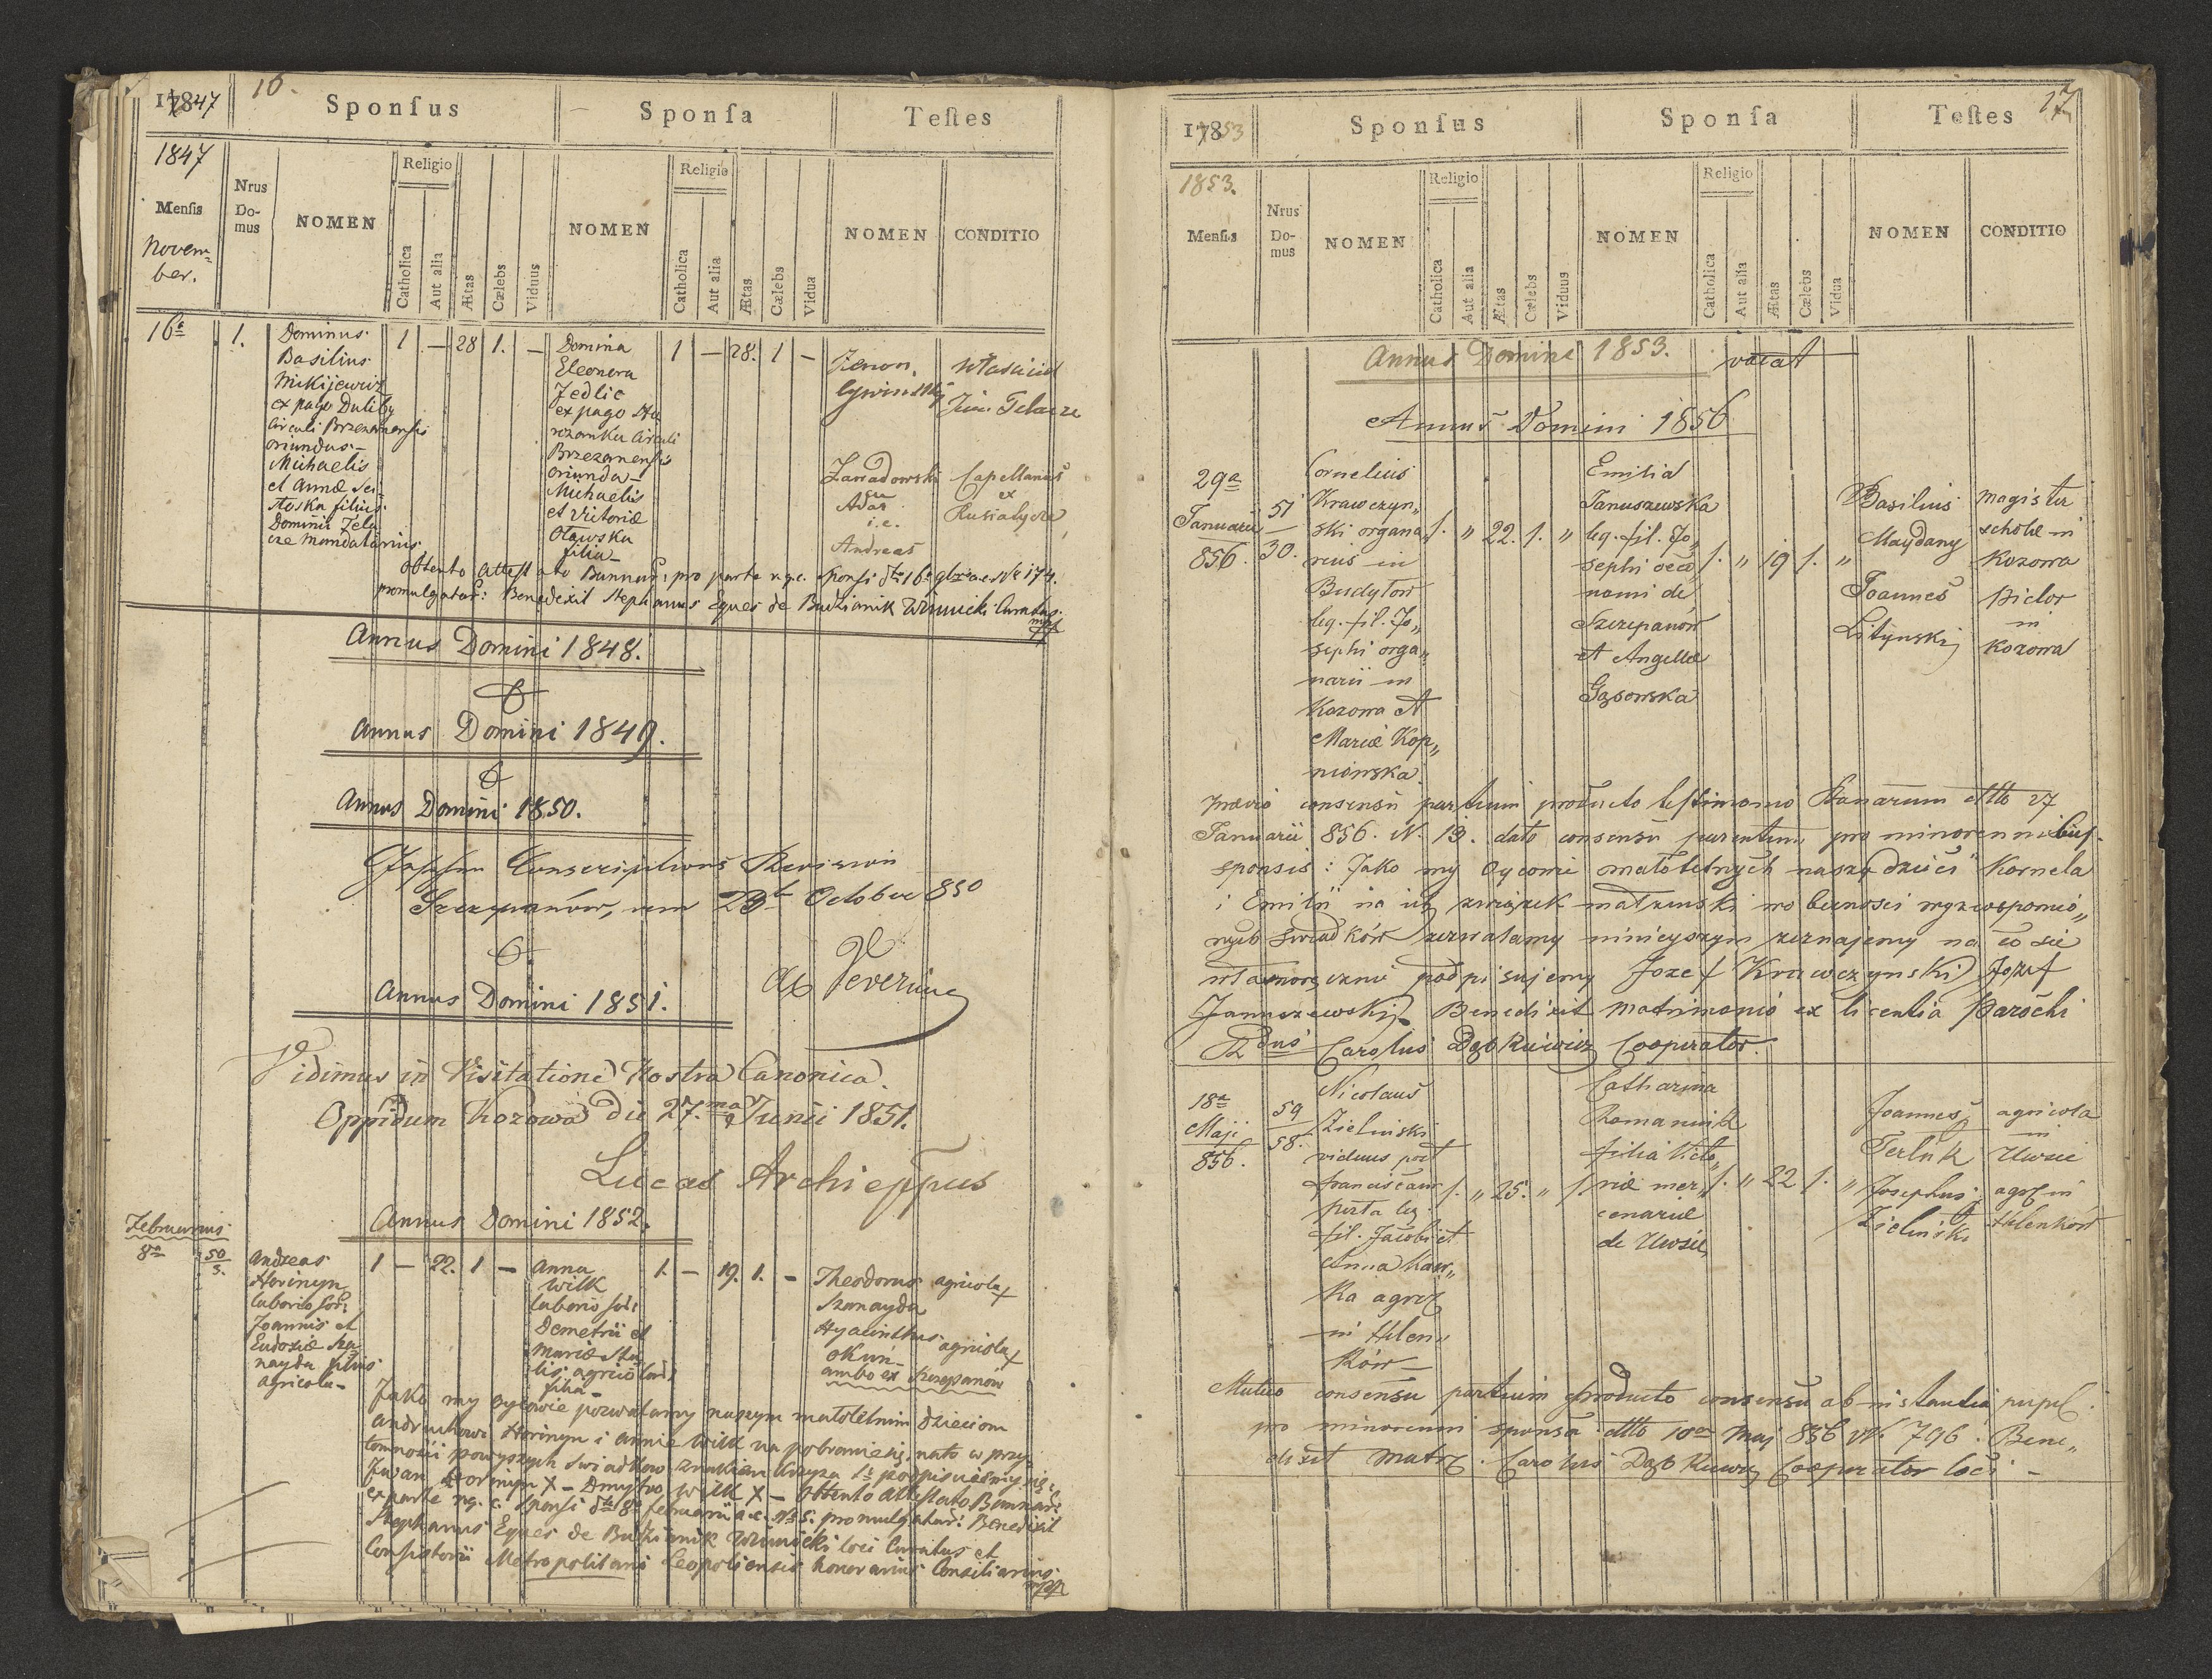 1847
16.
Sponſus
Sponſa
Teſtes
1847
Menſis
Novem=
ber.
Nrus
Do-
mus
NOMEN
Religio
Catholica
Aut alia
Ætas
Cælebs
Viduus
NOMEN
Religio
Catholica
Aut alia
Ætas
Cælebs
Vidua
NOMEN
CONDITIO
16a
1.
Dominus
Basilius
Mikijewicz
ex pago Duliby
Circuli Brzezanensis
oriundus—
Michaelis
et Annæ
filius
Dominii
Mandatarius
1 — 28 1. —
Domina
Eleonora
Jedlic
ex pago
Circuli
Brzezanensis
oriunda—
Michaelis
et Victoriæ
Otawska
filia—
1 — 28. 1 —
Zenon
Zawadowski
Adar
i.e.
Andreas
Capellanus
ex
obtento Attestato Bannor: pro parte r.g.c. Sponsi
promulgatar: Benedixit Stephanus Eques de Budzianik Winnicki Curatus.
mp
Annus Domini 1848.
Annus Domini 1849.
Annus Domini 1850.
Conscriptions Revision
Szczepanów, am 23t October 850
Annus Domini 1851.
Vidimus in Visitatione Nostra Canonica.
Oppidum Kozowa die 27.ma Junii 1851.
Lucas Archieppus
Annus Domini 1852.
Februarius
8a
50
3.
Andreas
Horinyn
laborio
Joannis et
Eudoxiæ
nayda filius
agricola—
1 — 22. 1 —
Anna
Wilk
laborio
Demetrii et
Mariæ
filia—
1. — 19. 1. —
Theodorus
Szanayda
Hyacinthus
Okun
ambo ex Szczepanów
agricola
agricola
Jako my oycowie pozwalamy naszym małoletnim dzieciom
Andruchowi Horinyn i Annie Wilk na pobranie się, na to w przy=
tomności powyższych świadków znakiem krzyża podpisuiemy się:
Iwan Horinyn X — Dmytro Wilk X — obtento attestato Bannar:
ex parte r.g.c. Sponsi februarii a.c. promulgatar: Benedixit
Stephanus Eques de Budzianik Winnicki loci Curatus et
Consistorii Metropolitani Leopoliensis honorarius Consiliarius
1853
17
Sponſus
Sponſa
Teſtes
1853.
Menſis
Nrus
Do-
mus
NOMEN
Religio
Catholica
Aut alia
Ætas
Cælebs
Viduus
NOMEN
Religio
Catholica
Aut alia
Ætas
Cælebs
Vidua
NOMEN
CONDITIO
Annus Domini 1853. vacat
Annus Domini 1856
29a
Januarii
856.
51
30.
Cornelius
Krawczyn„
ski organa
rius in
Budyłow
leg. fil. Jo„
sephi orga„
narii in
Kozowa et
Mariæ Kop„
niowska.
1. „ 22. 1. „
Emilia
Januszewska
leg. fil. Jo„
sephi oeco
nomi de
Szczepanów
et Angellæ
Gąsowska
1. „ 19 1. „
Basilius
Maydany
Joannes
Litynski
magister
scholæ in
Kozowa
pictor
in
Kozowa
prævio consensu partium producto testimonio Banarum dtto 27
Januarii 856. N. 13. dato consensu parentum pro minorennibus
sponsis: Jako my Oycowie małoletnych naszych dzieci Kornela
i Emilii na ich związek małżenski w obecnosci wyzwspomio„
nych świadków zezwalamy niniejszym zeznajemy na co sie
własnoręcznie podpisujemy Jozef Krawczynski Jozef
Januszewski. Benedixit matrimonio ex licentia Parochi
Rdus Carolus Dąbkiewicz Cooperator.
18a
Maji
856.
59
58.
Nicolaus
Zielinski
viduus post
leg.
fil. Jacobi et
Anna Kaw„
ka agric
in Helen„
ków
1. „ 25. „ 1.
Catharina
Romaniuk
filia Victo„
riæ mer„
cenariæ
de Uwsie
1. „ 22 1. „
Joannes
Terluk
Josephus
Zielinski
agricola
in
Uwsie
agr in
Helenków
Mutuo consensu partium producto consensu ab instantia pupil.
pro minorenni sponsa dtto 10a Maj 856 N. 796. Bene„
dixit matr. Carolus Dąbkiewicz Cooperator loci —